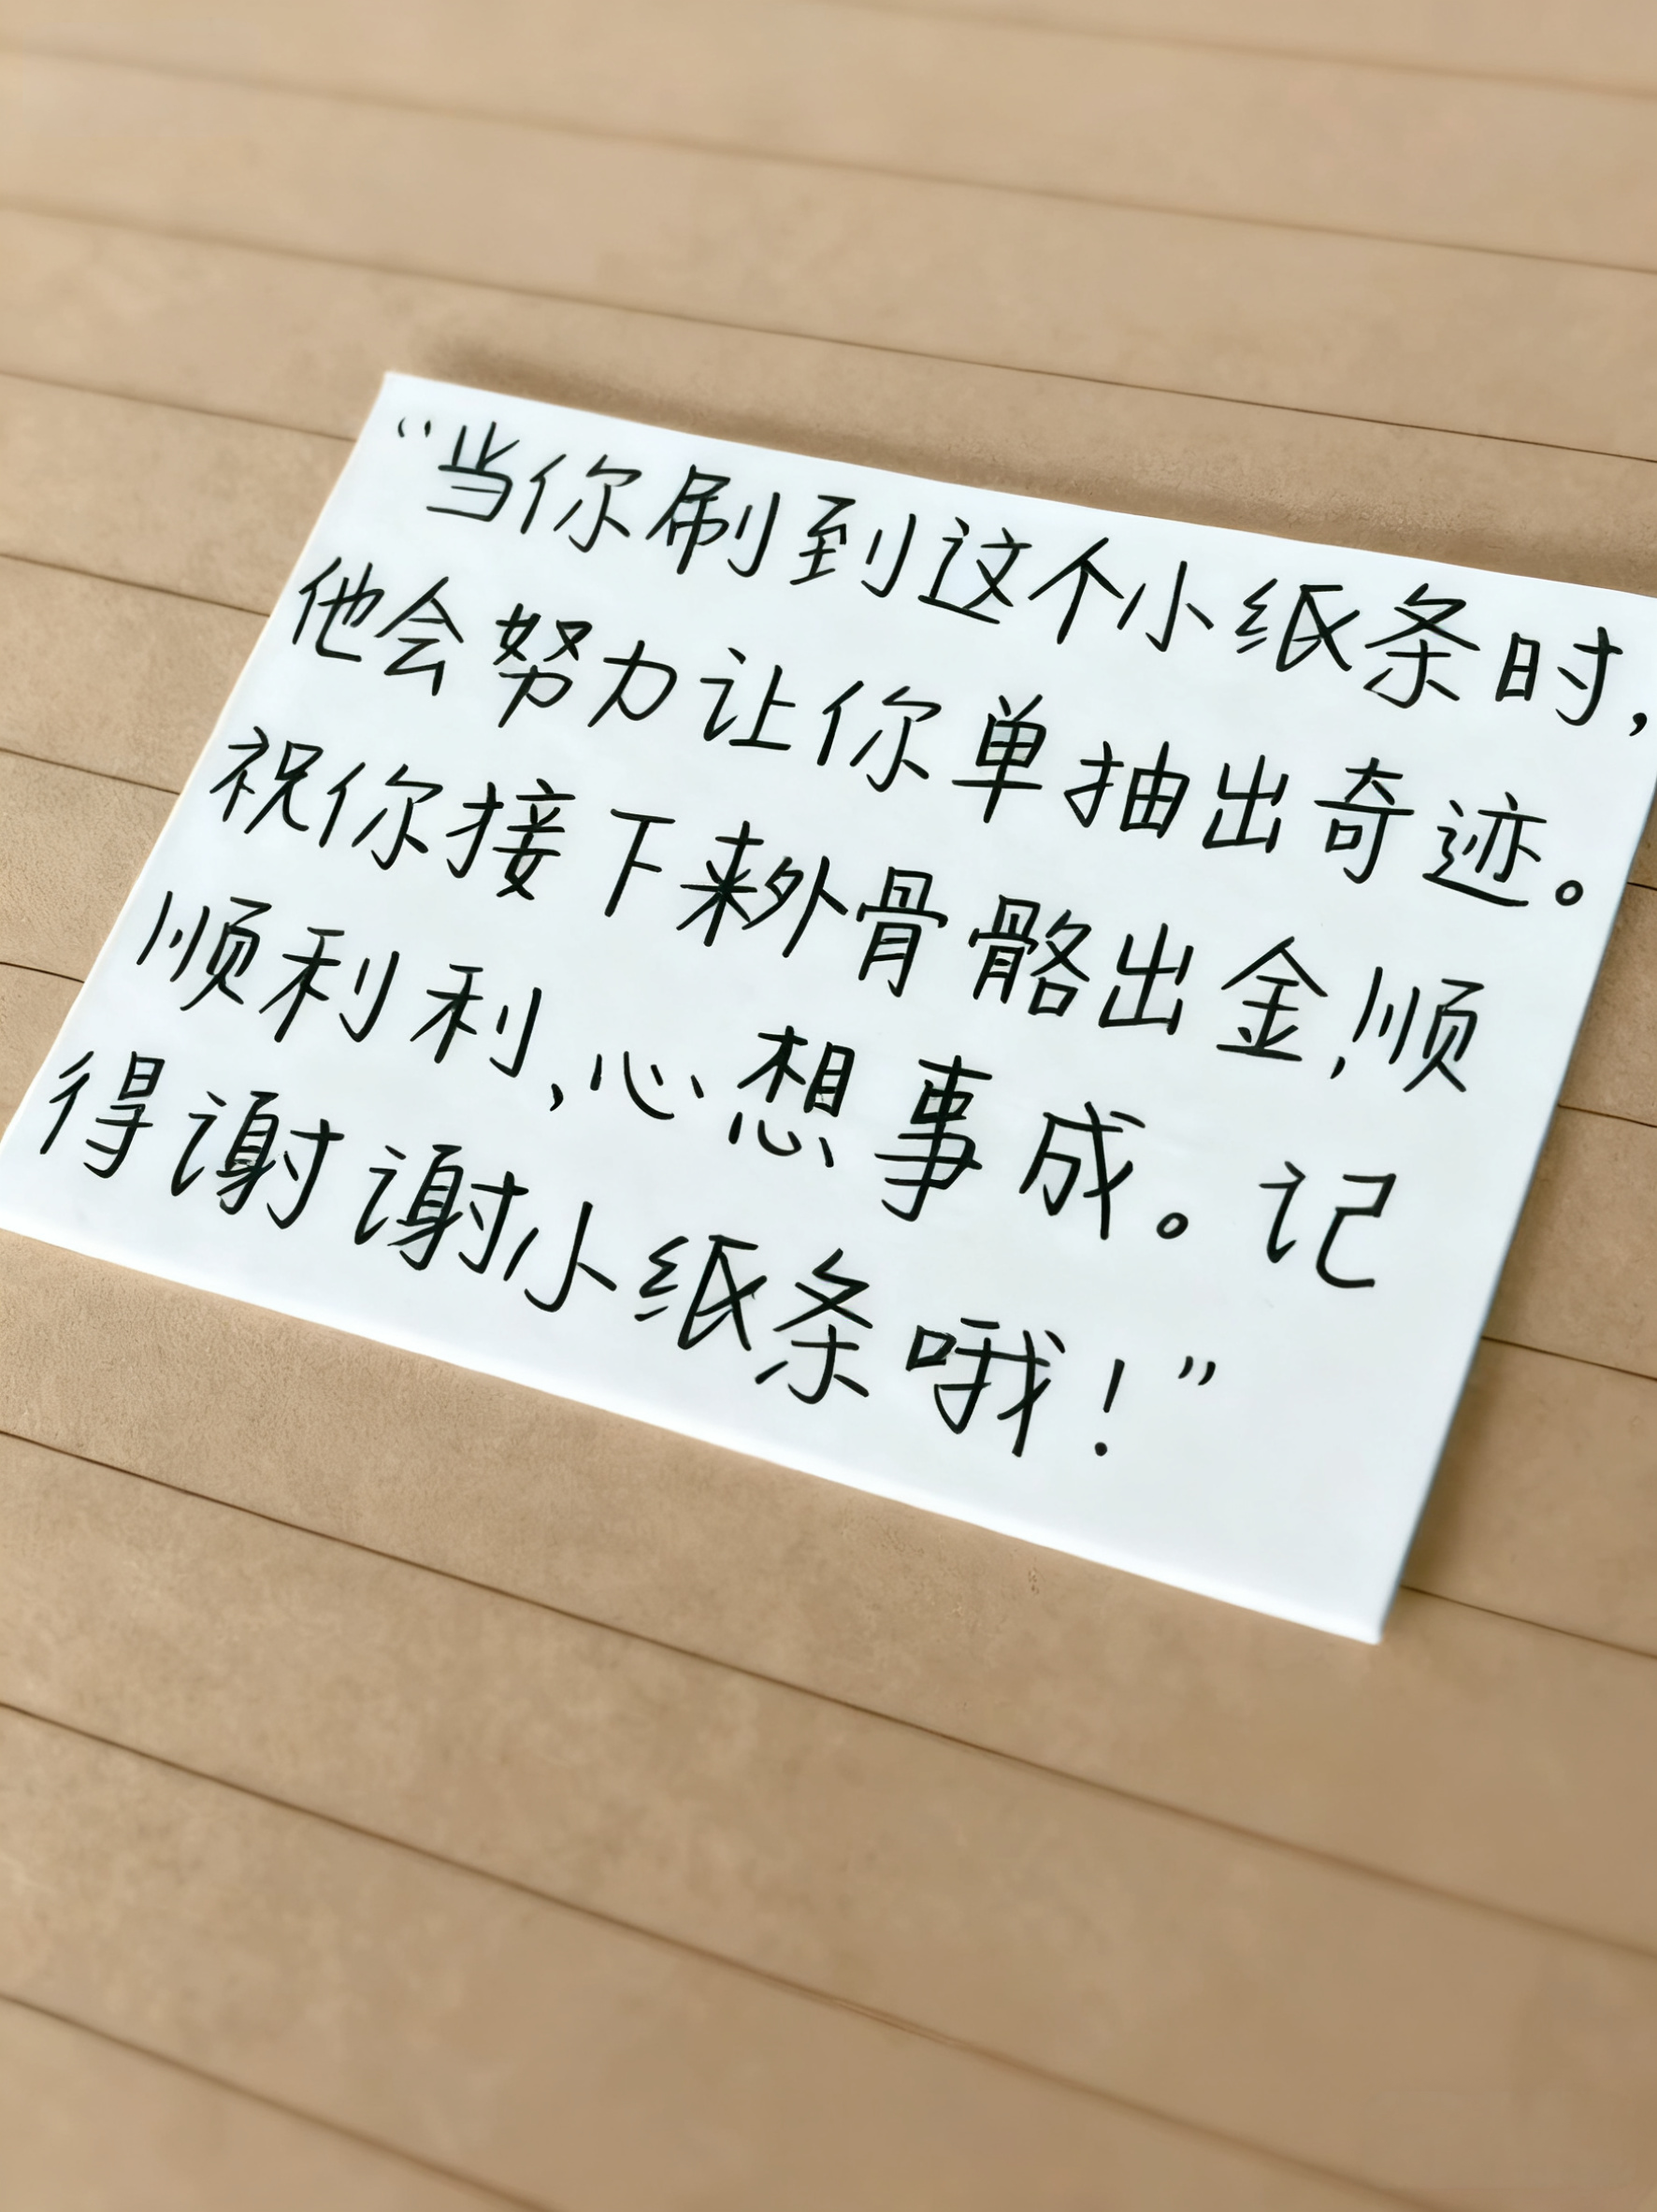 “当你刷到这个小纸条时，
他会努力让你单抽出奇迹。
祝你接下来外骨骼出金，顺
顺利利，心想事成。记
得谢谢小纸条哦！”